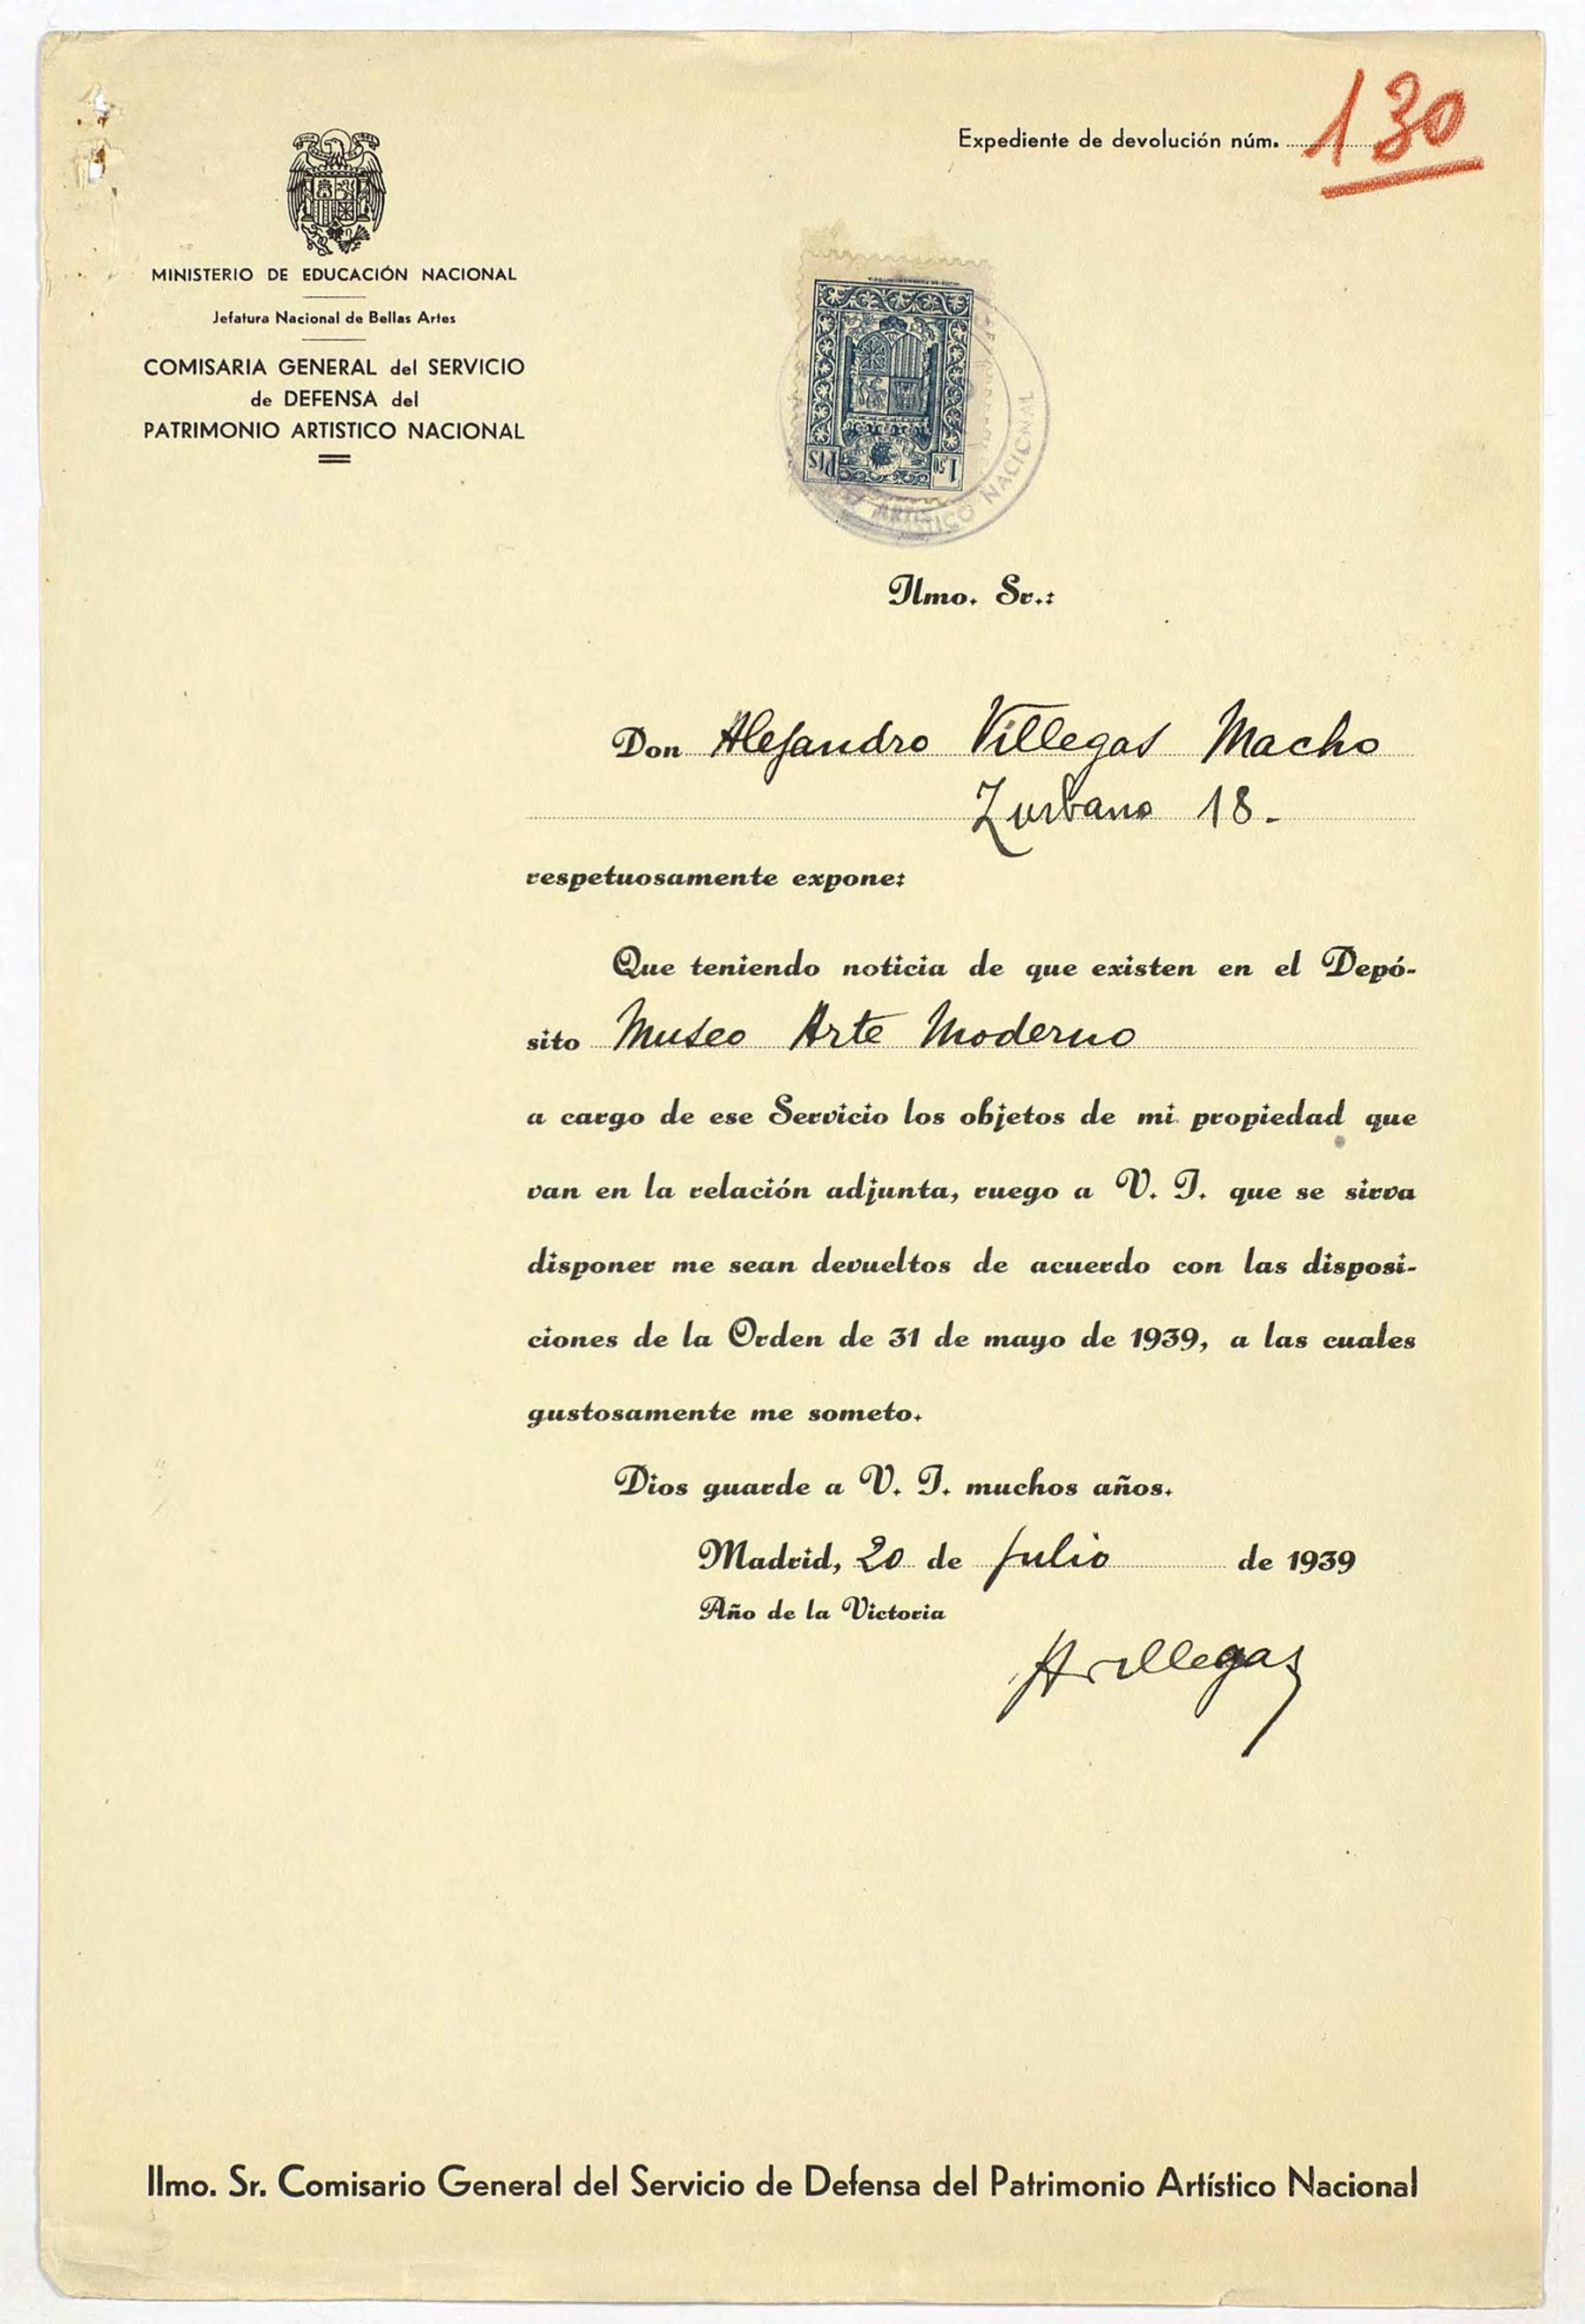 Expediente de devolución núm. 130
MINISTERIO DE EDUCACIÓN NACIONAL
Jefatura Nacional de Bellas Artes
COMISARIA GENERAL del SERVICIO
de DEFENSA del
PATRIMONIO ARTISTICO NACIONAL
1,50 Pts
ARTISTICO NACIONAL
Ilmo. Sr.:
Don Alejandro Villegas Macho
Zurbano 18.
respetuosamente expone:
Que teniendo noticia de que existen en el Depó-
sito Museo Arte Moderno
a cargo de ese Servicio los objetos de mi propiedad que
van en la relación adjunta, ruego a V. I. que se sirva
disponer me sean devueltos de acuerdo con las disposi-
ciones de la Orden de 31 de mayo de 1939, a las cuales
gustosamente me someto.
Dios guarde a V. I. muchos años.
Madrid, 20 de julio de 1939
Año de la Victoria
AVillegas
Ilmo. Sr. Comisario General del Servicio de Defensa del Patrimonio Artístico Nacional